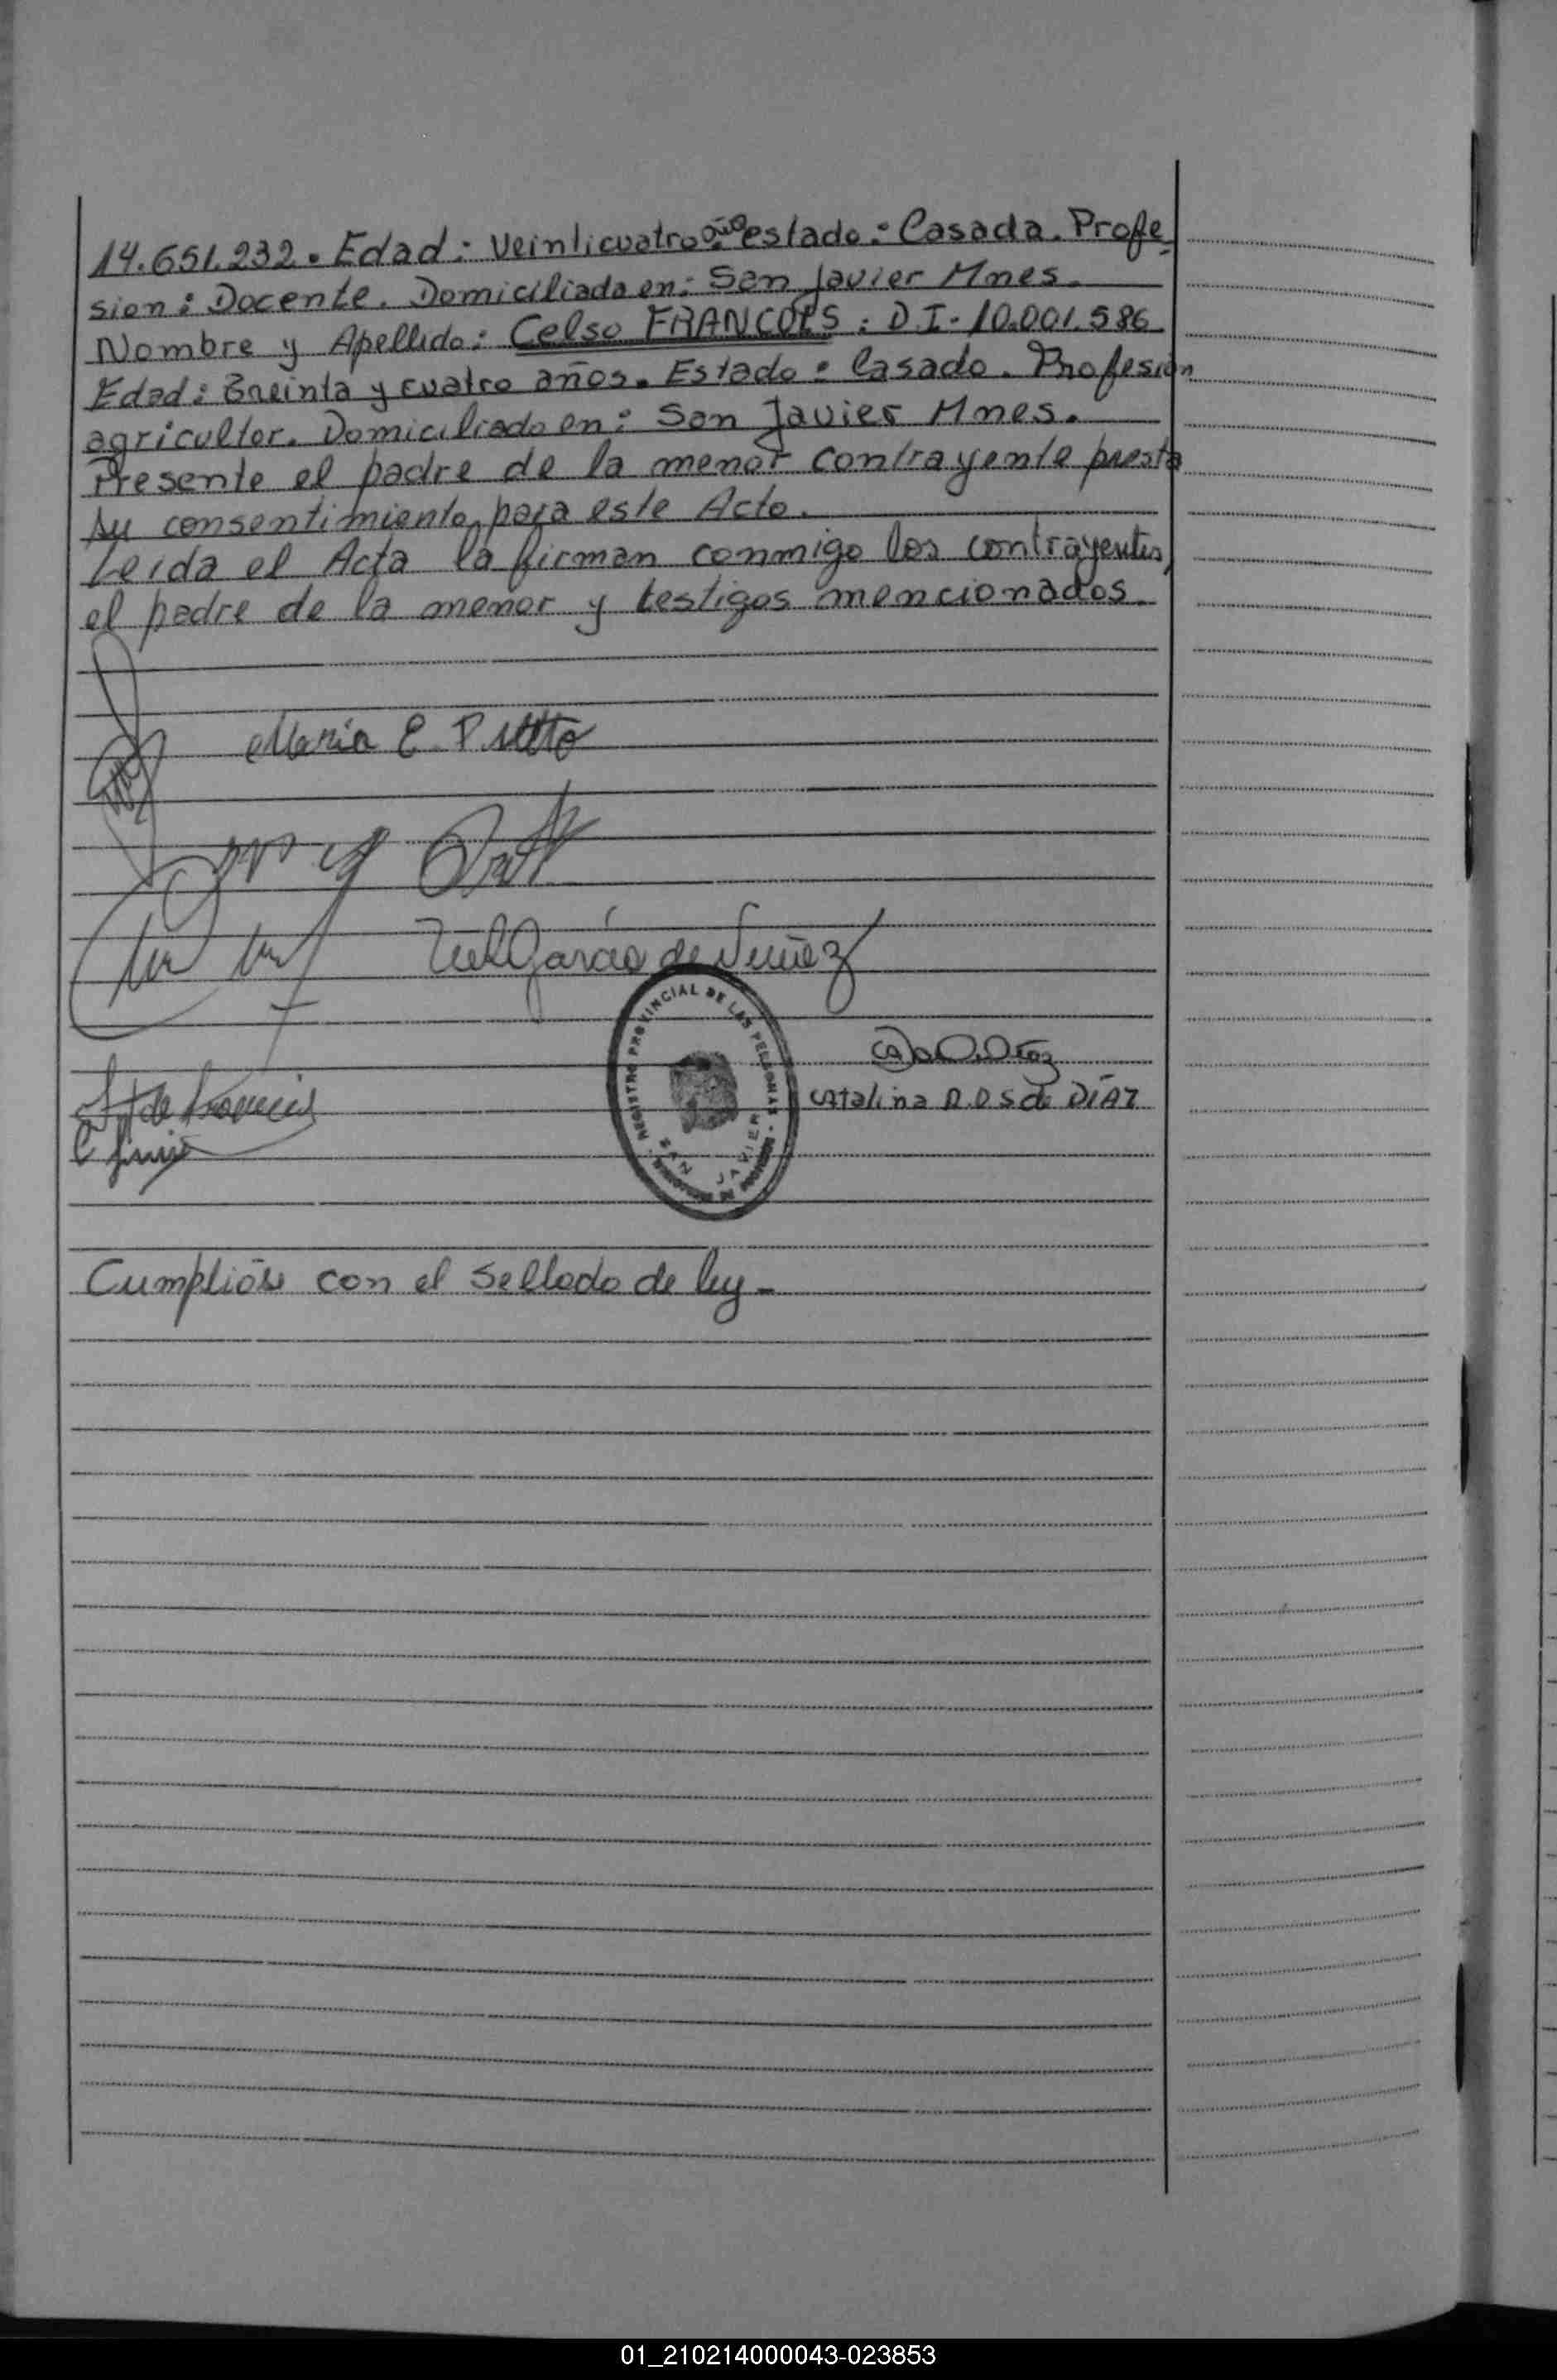 14.651.232. Edad: Veinticuatro años estado: Casada. Profe-
sion: Docente. Domiciliada en: San Javier Mnes.
Nombre y Apellido: Celso FRANCOIS: D I- 10.001.586
Edad: Treinta y cuatro años. Estado: Casado. Profesión
agricultor. Domiciliado en: San Javier Mnes.
Presente el padre de la menor contrayente presta
su consentimiento para este Acto.
Leida el Acta la firman conmigo los contrayentes,
el padre de la menor y testigos mencionados.
Maria E. Pretto
García de Nuñez
REGISTRO PROVINCIAL DE LAS PERSONAS
SAN JAVIER
Catalina D.D S de DÍAZ
Cumplióse con el Sellado de ley-
01_210214000043-023853